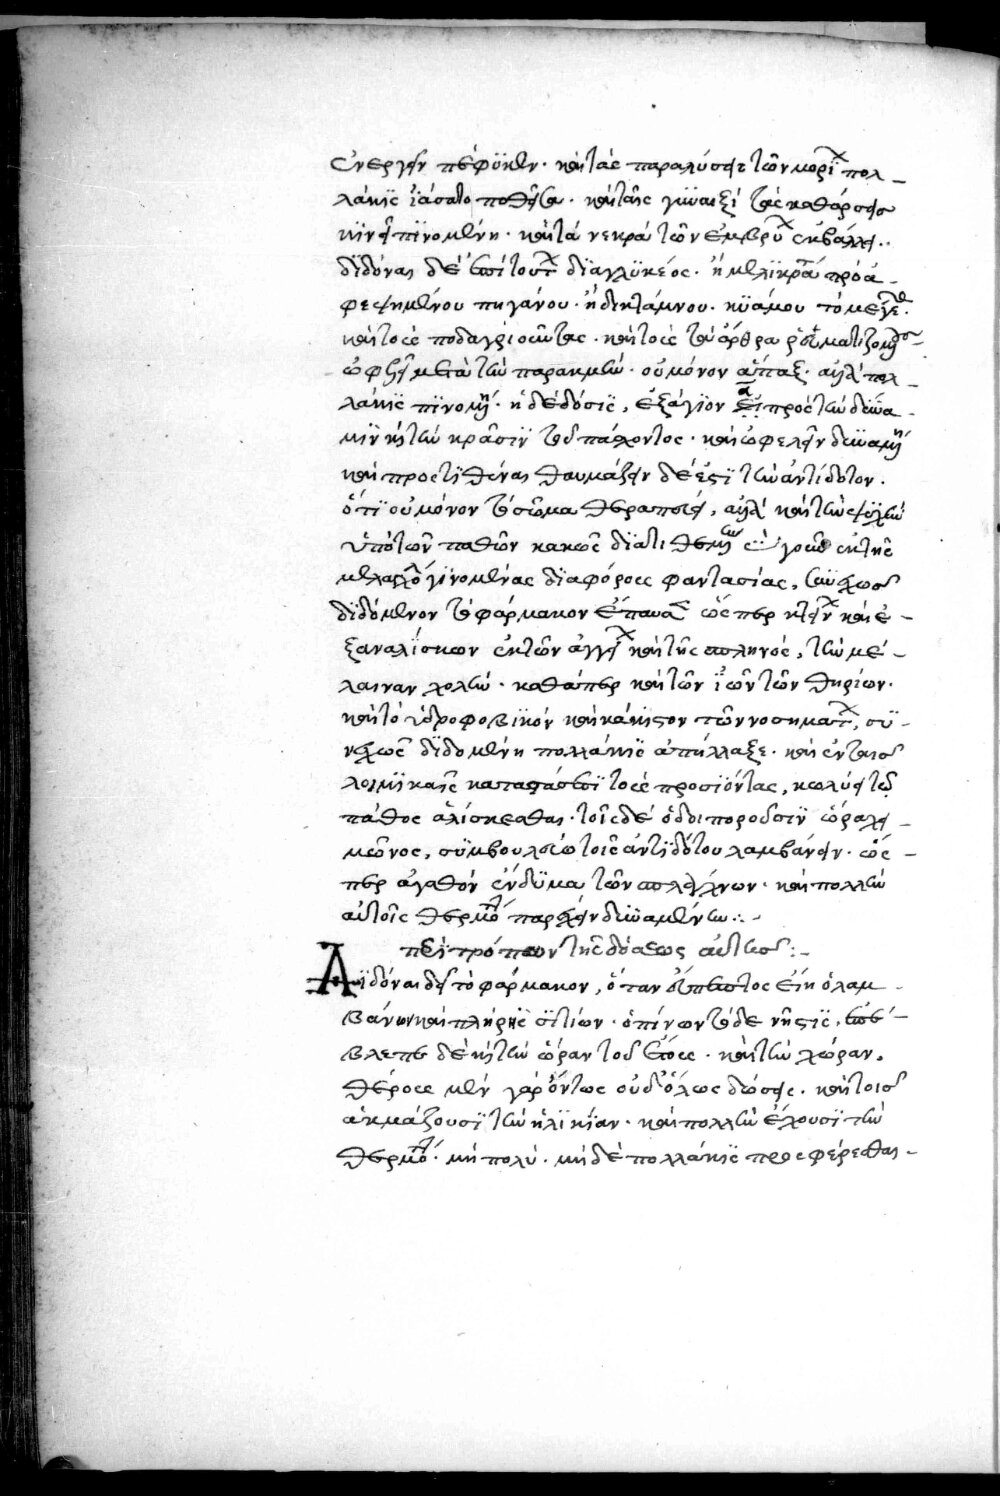 ἐνεργεῖν πέφυκεν· καὶ τὰς παραλύσεις τῶν μορίων πολ-
λάκις ἰάσατο ποθεῖσα· καὶ ταῖς γυναιξὶ τὰς καθάρσεις
κινεῖ πινομένη· καὶ τὰ νεκρὰ τῶν ἐμβρύων ἐκβάλλει·
διδόναι δὲ ἐπὶ τούτων διὰ γλυκέος· ἢ μελικράτου προα-
φεψημένου πηγάνου· ἢ δικτάμνου· κυάμου τὸ μέγεθος·
καὶ τοὺς ποδαγριῶντας· καὶ τοὺς τὰ ἄρθρα ῥευματιζομένους
ὠφελεῖ μετὰ τὴν παρακμήν· οὐ μόνον ἅπαξ· ἀλλὰ πολ-
λάκις πινομένη· ἡ δὲ δόσις, ἐξάγιον πρὸς τὴν δύνα-
μιν καὶ τὴν κρᾶσιν τοῦ πάσχοντος· καὶ ὠφελεῖν δυναμένη
καὶ προστιθέναι θαυμάζειν δέ ἐστι τὴν ἀντίδοτον·
ὅτι οὐ μόνον τὸ σῶμα θεραπεύει, ἀλλὰ καὶ τὴν ψυχὴν
ὑπὸ τῶν παθῶν κακῶς διατιθεμένην γοῦν ἐκ τῆς
μελαγχολίας γινομένας διαφόρους φαντασίας, συνεχῶς
διδόμενον τὸ φάρμακον ἔπαυσεν ὥσπερ καὶ ἐ-
ξαναλίσκων ἐκ τῶν ἀγγείων καὶ τῆς σπληνός, τὴν μέ-
λαιναν χολήν· καθάπερ καὶ τῶν ἰῶν τῶν θηρίων·
καὶ τὸ ὑδροφοβικὸν καὶ κάκιστον τῶν νοσημάτων, συ-
νεχῶς διδομένη πολλάκις ἀπήλλαξε· καὶ ἐν ταῖς
λοιμικαῖς καταστάσεσι τοὺς προσιόντας, κωλύει τῷ
πάθος ἁλίσκεσθαι· τοῖς δὲ ὁδοιποροῦσιν ὥρα χει-
μῶνος, συμβουλεύω τοῖς ἀντιδότου λαμβάνειν· ὥς-
περ ἀγαθὸν ἔνδυμα τῶν σπλάγχνων· καὶ πολλὴν
αὐτοῖς θερμότητα παρέχειν δυναμένην:-
περὶ τρόπων τῆς δόσεως αὐτῆς:-
Διδόναι δεῖ τὸ φάρμακον, ὅταν ἄπεπτος εἴη ὁ λαμ-
βάνων καὶ πλήρης σιτίων· ὁ πίνων τὸδε νῆστις,
βλέπε δὲ καὶ τὴν ὥραν τοῦ ἔτους· καὶ τὴν χώραν·
θέρους μὲν γὰρ ὄντως οὐδ' ὅλως δώσεις· καὶ τοῖς
ἀκμάζουσι τὴν ἡλικίαν· καὶ πολλὴν ἔχουσι τὴν
θερμότητα· μὴ πολύ· μὴ δὲ πολλάκις προσφέρεσθαι-